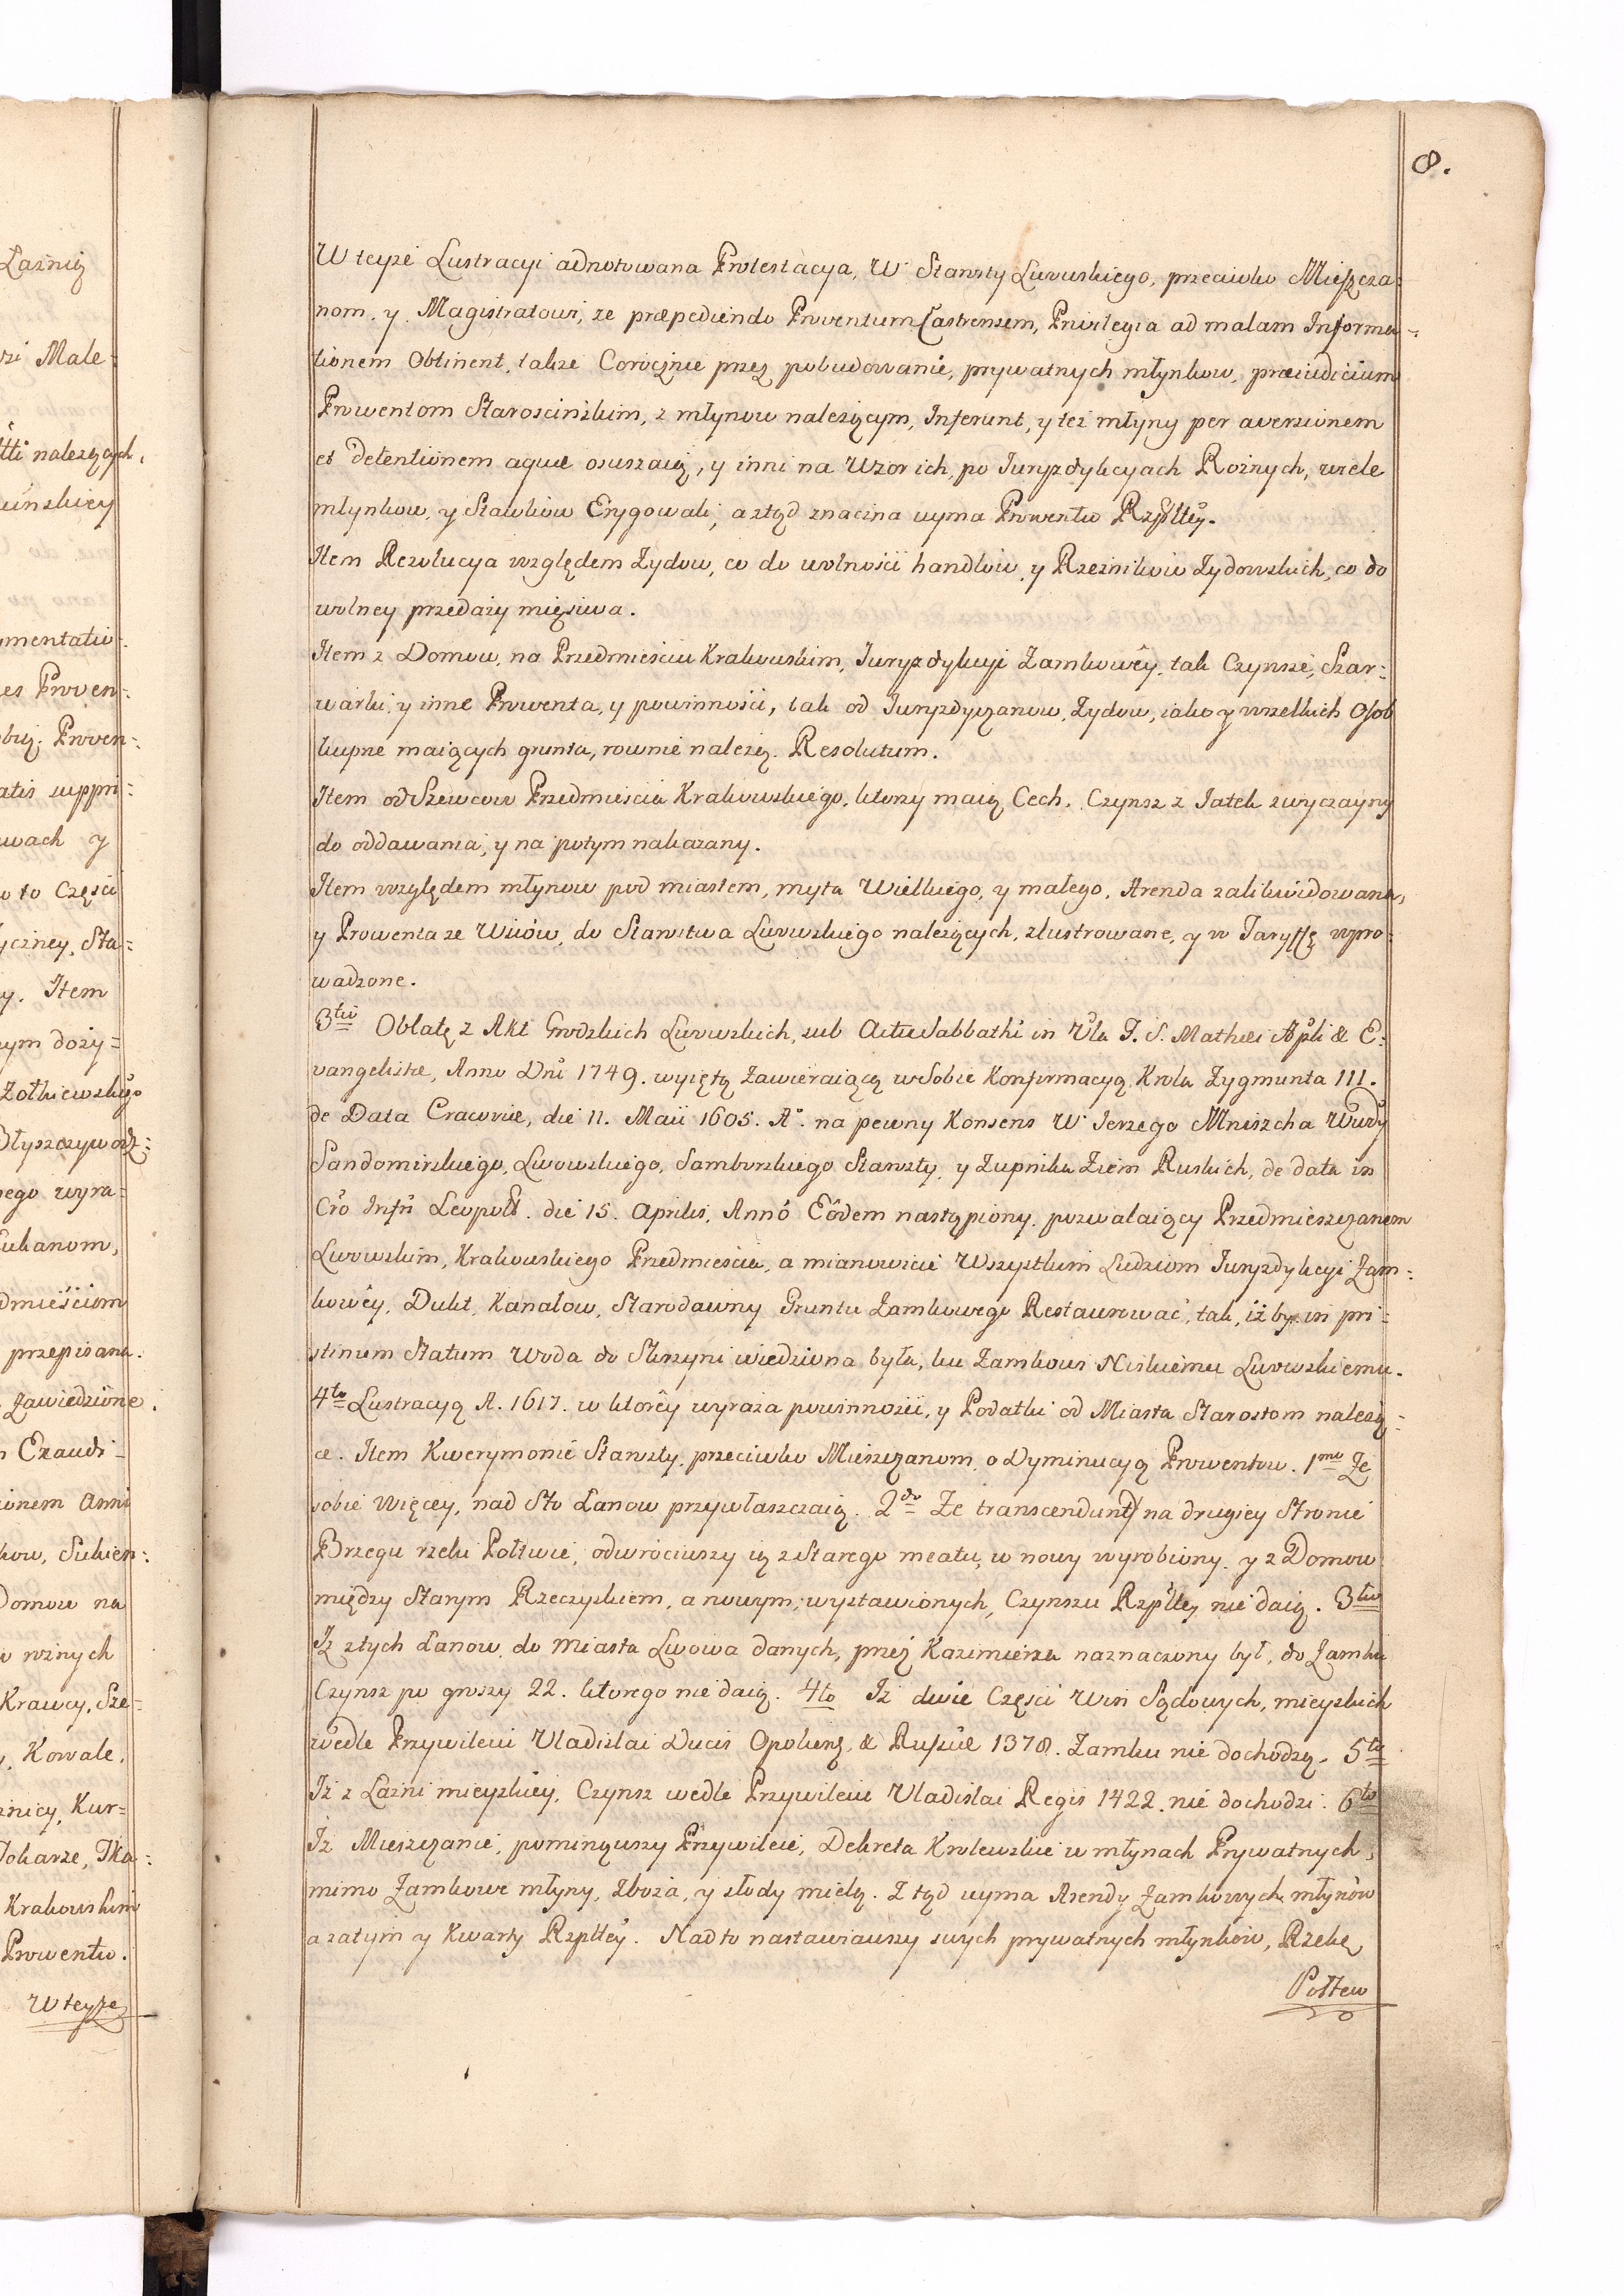 8.
W teyże Lustracyi adnotowana Protestacya, W Starosty Lwowskiego, przeciwko Mieszcza-
nom, y Magistratowi, ze præpediendo Proventum Castrensem, Privilegia ad malam Informa-
tionem Obtinent, także Corocznie przez pobudowanie, prywatnych młynkow, præiudicium
Prowentom Starościńskim, z młynow należącym, Inferunt, y też młyny per aversionem
et detentionem aquæ osuszaią, y inni na Wzor ich, po Juryzdykcyach Rożnych, wiele
młynkow, y Stawkow Erygowali, a ztąd znaczna uyma Prowentu Rzpltey.
Item Rezolucya względem Żydow, co do wolności handlow, y Rzeżnikow Żydowskich, co do
wolney przedaży mięsiwa.
Item z Domow, na Przedmieściu Krakowskim, Juryzdykcyi Zamkowey, tak Czynsze, Szar-
warki, y inne Prowenta, y powinności, tak od Juryzdyczanow, Żydow, iako y wszelkich Osob
kupne maiących grunta, rownie należą. Resolutum.
Item od Szewcow Przedmieścia Krakowskiego, ktorzy maią Cech, Czynsz z Jatek zwyczayny
do oddawania, y na potym nakazany.
Item względem młynow pod miastem, myta Wielkiego, y małego, Arenda zalikwidowana,
y Prowenta ze Wsiów, do Starostwa Lwowskiego należących, zlustrowane, y w Taryffę wpro-
wadzone.
3tio Oblatę z Akt Grodzkich Lwowskich, sub Actu Sabbathi in Vla F. S. Mathæi Apli & E-
vangelistæ, Anno Dni 1749. wyiętą zawieraiącą w Sobie Konfirmacyą Krola Zygmunta III.
de Data Cracoviæ, die 11. Maii 1605. Ao. na pewny Konsens W Jerzego Mniszcha Wwdy
Sandomirskiego, Lwowskiego, Samborskiego Starosty, y Zupnika Ziem Ruskich, de data in
Cro Infri Leopoli. die 15. Aprilis, Anno Eodem nastąpiony, pozwalaiący Przedmieszczanom
Lwowskim, Krakowskiego Przedmieścia, a mianowicie Wszystkim Ludziom Juryzdykcyi Zam-
kowey, Dukt, Kanałow, Starodawny Gruntu Zamkowego Restaurować, tak, iżby in pri-
stinum Statum Woda do Skrzyni wiedziona była, ku Zamkowi Niskiemu Lwowskiemu.
4to Lustracyą A. 1617. w ktorey wyraża powinności, y Podatki od Miasta Starostom należą-
ce. Item Kwerymonie Starosty, przeciwko Mieszczanom, o Dyminucyą Prowentow. 1mo Ze
sobie Więcey, nad Sto Łanow przywłaszczaią. 2do Ze transcendunt na drugiey Stronie
Brzegu rzeki Połtwie, odwrociwszy ią z Starego meatu, w nowy wyrobiony, y z Domow
między Starym Rzeczyskiem, a nowym, wystawionych, Czynszu Rzpltey nie daią. 3tio
Iż z tych Łanow, do Miasta Lwowa danych, przez Kazimierza naznaczony był, do Zamku
Czynsz po groszy 22. ktorego nie daią. 4to Iż dwie Części Win Sądowych, mieyskich
wedle Przywileiu Vladislai Ducis Opoliens, & Russiæ 1378. Zamku nie dochodzą. 5to
Iż z Łaźni mieyskiey, Czynsz wedle Przywileiu Vladislai Regis 1422. nie dochodzi. 6to
Iż Mieszczanie, pominąwszy Przywileie, Dekreta Krolewskie w młynach Prywatnych,
mimo Zamkowe młyny, Zboża, y słody mielą. Z tąd uyma Arendy Zamkowych młynów
a zatym y Kwarty Rzpltey. Nad to nastawiawszy swych prywatnych młynków, Rzekę
Połtew
Łaźnią
Male-
należących,
Proven-
Proven-
suppri-
wach y
to Części
Sta-
y. Item
ym doży-
Żołkiewskiego
nego wyra-
przepisana.
Zawiedzione
Exaudi-
ionem Anni
kow, Sukien-
Domow na
rożnych
Krawcy, Sze-
Kowale,
Kur-
Tokarze, Tka-
Krakowskim
Prowentu.
W teyże